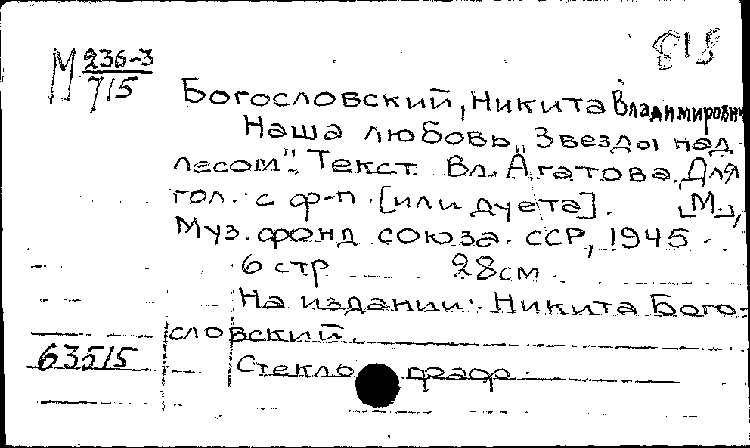 818
М 236-3
715
Богословский, Никита Владимирович
Наша любовь „Звезды над
лесом". Текст Вл. Агатова. Для
гол. с ф-п. [или дуета]. [М.],
Муз. фонд союза ССР, 1945
6 стр 28см.
На издании: Никита Бого-
словский.
63515
Стеклограф.